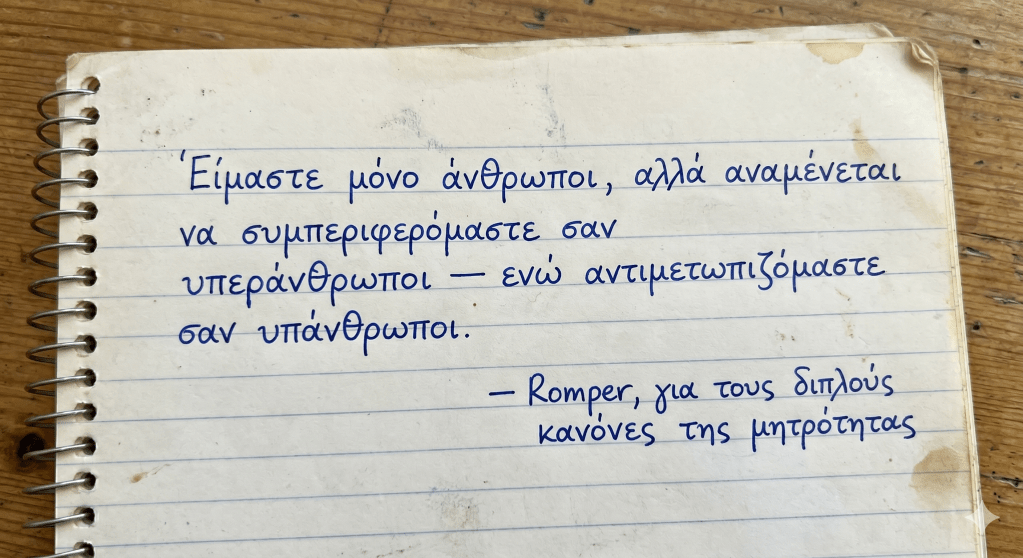 Έίμαστε μόνο άνθρωποι, αλλά αναμένεται
να συμπεριφερόμαστε σαν
υπεράνθρωποι — ενώ αντιμετωπιζόμαστε
σαν υπάνθρωποι.
— Romper, για τους διπλούς
κανόνες της μητρότητας